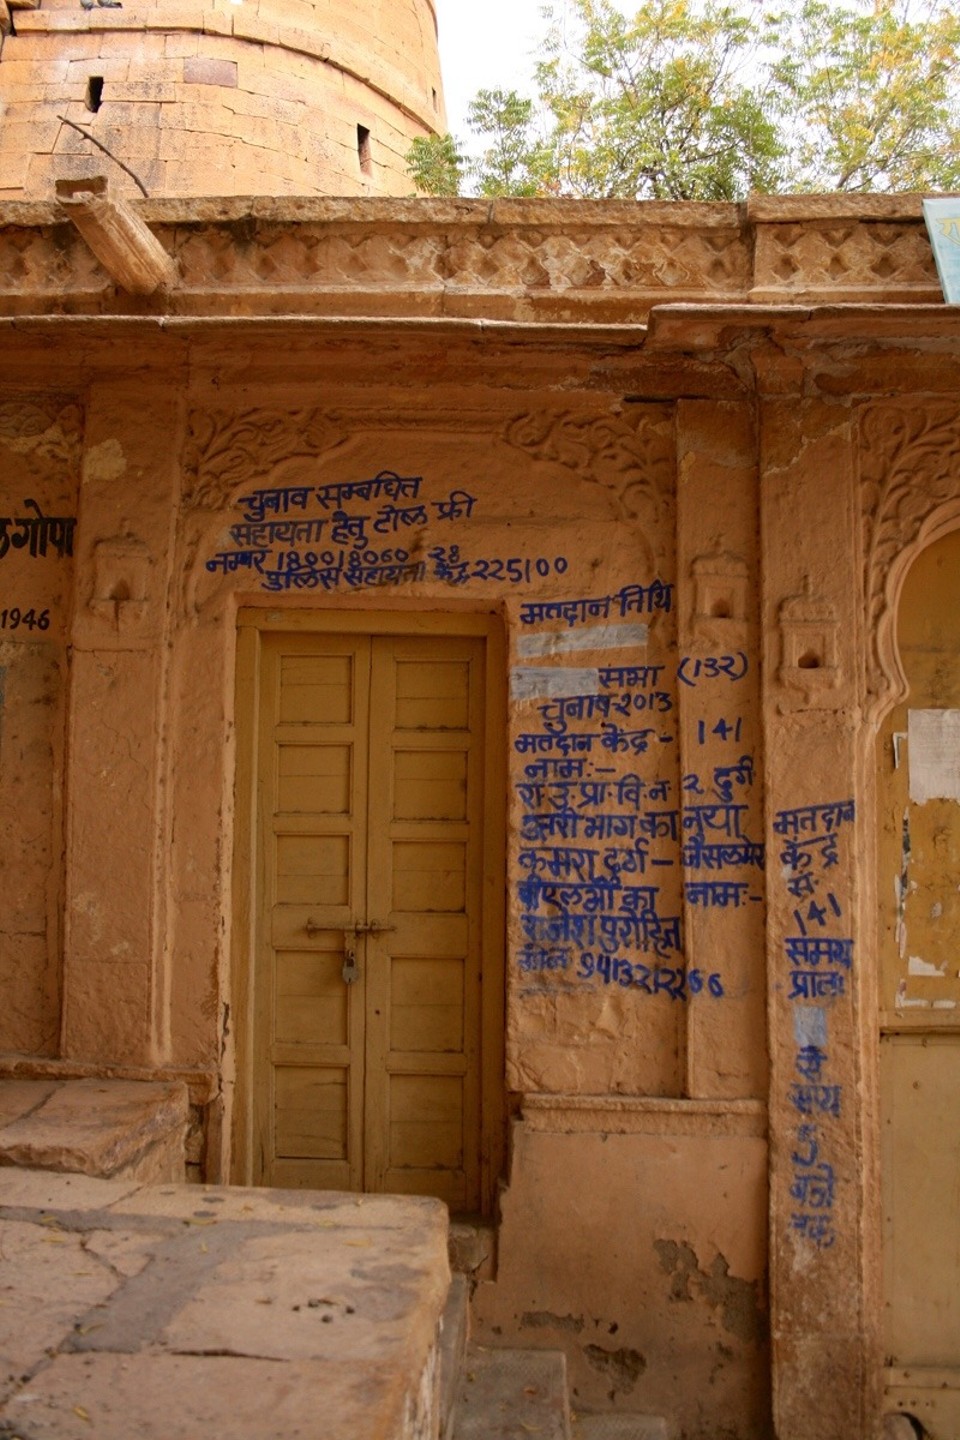 चुनाव सम्बधित
सहायता हेतु टोल फ्री
नम्बर 180018060 28
पुलिस सहायता केंद्र 225100
गोपा
1946
मतदान तिथि
सभा (132)
चुनाव-2013
मतदान केंद्र - 141
नाम:-
रा.उ.प्रा.वि.न. 2 दुर्ग
उत्तरी भाग का नया
कमरा दुर्ग - जैसलमेर
बीएलओ का नाम:-
राजेश पुरोहित
9413212266
मतदान
केंद्र
सं.
141
समय
प्रातः
से
सायं
5
बजे
तक